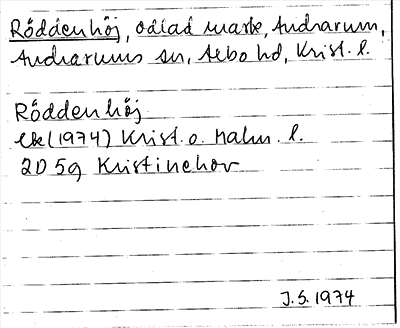 Röddenhöj, odlad mark, Andrarum,
Andrarums sn, Albo hd, Krist. l.
Röddenhöj
Ek (1974) Krist. o. Malm. l.
2D 5g Kristinehov
J.S. 1974